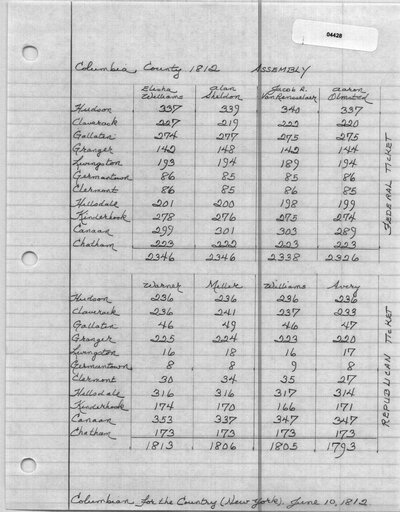 04428
Columbia County 1812 ASSEMBLY
Elisha Williams Alan Sheldon Jacob R. Van Rensselaer Aaron Olmsted
Hudson 337 339 340 337
Claverack 227 219 222 220
Gallatin 274 277 275 275
Granger 142 148 142 144
Livingston 193 194 189 194
Germantown 86 85 85 86
Clermont 86 85 86 85
Hillsdale 201 200 198 199
Kinderhook 278 276 275 274
Canaan 299 301 303 289
Chatham 223 222 223 223
2346 2346 2338 2326
FEDERAL TICKET
Warner Miller Williams Avery
Hudson 236 236 236 236
Claverack 236 241 237 233
Gallatin 46 49 46 47
Granger 225 224 223 220
Livingston 16 18 16 17
Germantown 8 8 9 8
Clermont 30 34 35 27
Hillsdale 316 316 317 314
Kinderhook 174 170 166 171
Canaan 353 337 347 347
Chatham 173 173 173 173
1813 1806 1805 1793
REPUBLICAN TICKET
Columbian for the Country (New York). June 10, 1812.